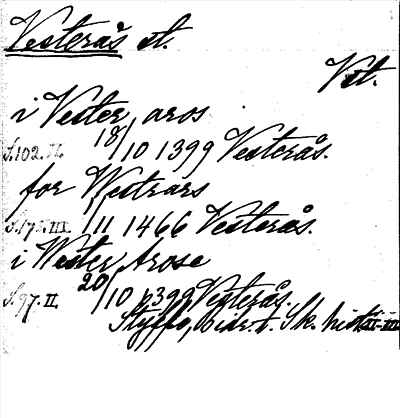 Vesterås st.
Vst.
i Vester aros
S.102.II. 18/10 1399 Vesterås.
for Westrars
S.175.III. 1/11 1466 Vesterås.
i Wester Arose
S.97.II. 20/10 1399 Vesterås.
Styffe, Bidr. t. Sk. hist. II-III